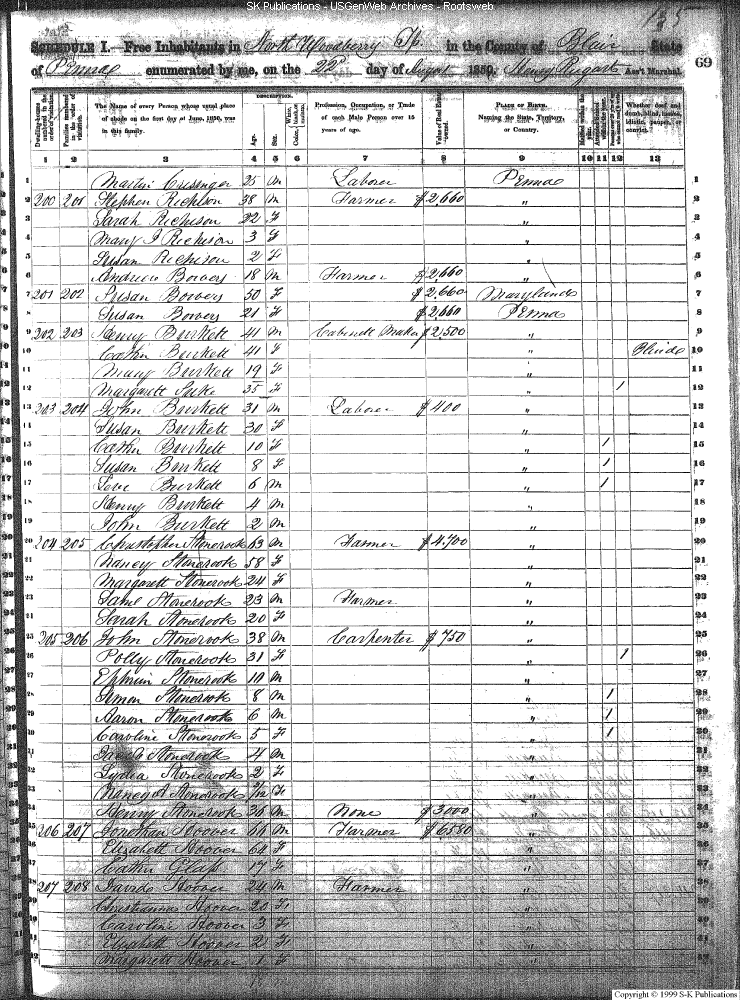 SK Publications - USGenWeb Archives - Rootsweb
135
SCHEDULE I.—Free Inhabitants in North Woodberry Tp. in the County of Blair State
of Penna enumerated by me, on the 22d day of August 1850. Henry Ass't Marshal. 69
Dwelling-houses numbered in the order of visitation. Families numbered in the order of visitation. The Name of every Person whose usual place of abode on the first day of June, 1850, was in this family. DESCRIPTION. Age. Sex. Color, Profession, Occupation, or Trade of each Male Person over 15 years of age. Value of Real Estate owned. PLACE OF BIRTH. Naming the State, Territory, or Country. Married within the year. Whether deaf and dumb, blind, insane, idiotic, pauper, or convict.
1 2 3 4 5 6 7 8 9 10 11 12 13
1 Martin 25 M Laborer Penna 1
2 200 201 Stephen Richison 38 M Farmer $2,660 " 2
3 Sarah Richison 22 F " 3
4 Mary J Richison 3 F " 4
5 Susan Richison 2 F " 5
6 Andrew Bowers 18 M Farmer $2,660 " 6
7 201 202 Susan Bowers 50 F $2,660 Maryland 7
8 Susan Bowers 21 F $2,660 Penna 8
9 202 203 Henry Burkett 41 M Cabinett Maker $2,500 " 9
10 Cathn Burkett 41 F " Blind 10
11 Mary Burkett 19 F " 11
12 Margarett 35 F " 1 12
13 203 204 John Burkett 31 M Laborer $400 " 13
14 Susan Burkett 30 F " 14
15 Cathn Burkett 10 F " 1 15
16 Susan Burkett 8 F " 1 16
17 Levi Burkett 6 M " 1 17
18 Henry Burkett 4 M " 18
19 John Burkett 2 M " 19
20 204 205 Christopher Stonerook 63 M Farmer $4,700 " 20
21 Nancy Stonerook 58 F " 21
22 Margarett Stonerook 24 F " 22
23 Saml Stonerook 23 M Farmer " 23
24 Sarah Stonerook 20 F " 24
25 205 206 John Stonerook 38 M Carpenter $750 " 25
26 Polly Stonerook 31 F " 1 26
27 Ephraim Stonerook 10 M " 27
28 Simon Stonerook 8 M " 1 28
29 Aaron Stonerook 6 M " 1 29
30 Caroline Stonerook 5 F " 1 30
31 Jacob Stonerook 4 M " 31
32 Lydia Stonerook 2 F " 32
33 Stonerook F " 33
34 Henry Stonerook 36 M None $3000 " 34
35 206 207 Jonathan Hoover 66 M Farmer $6580 " 35
36 Elizabett Hoover 60 F " 36
37 Cathn Glass 17 F " 37
38 207 208 David Hoover 24 M Farmer " 38
39 Christianna Hoover 20 F " 39
40 Caroline Hoover 3 F " 40
41 Elizabett Hoover 2 F " 41
42 Margarett Hoover 1 F " 42
Copyright © 1999 S-K Publications